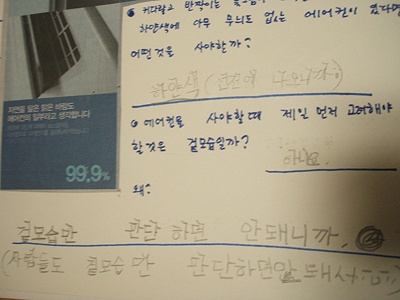 커다랗고 반짝이는
하얀색에 아무 무늬도 없는 에어컨이 있다면
어떤것을 사야할까?
하얀색
에어컨을 사야할때 제일 먼저 고려해야
할것은 겉모습일까?
아니요.
왜?
자연을 닮은 맑은 바람도
에어컨의 일부라고 생각합니다
99.9%
겉모습만 판단 하면 안돼니까.
(사람들도 겉모습 만 판단하면안돼서